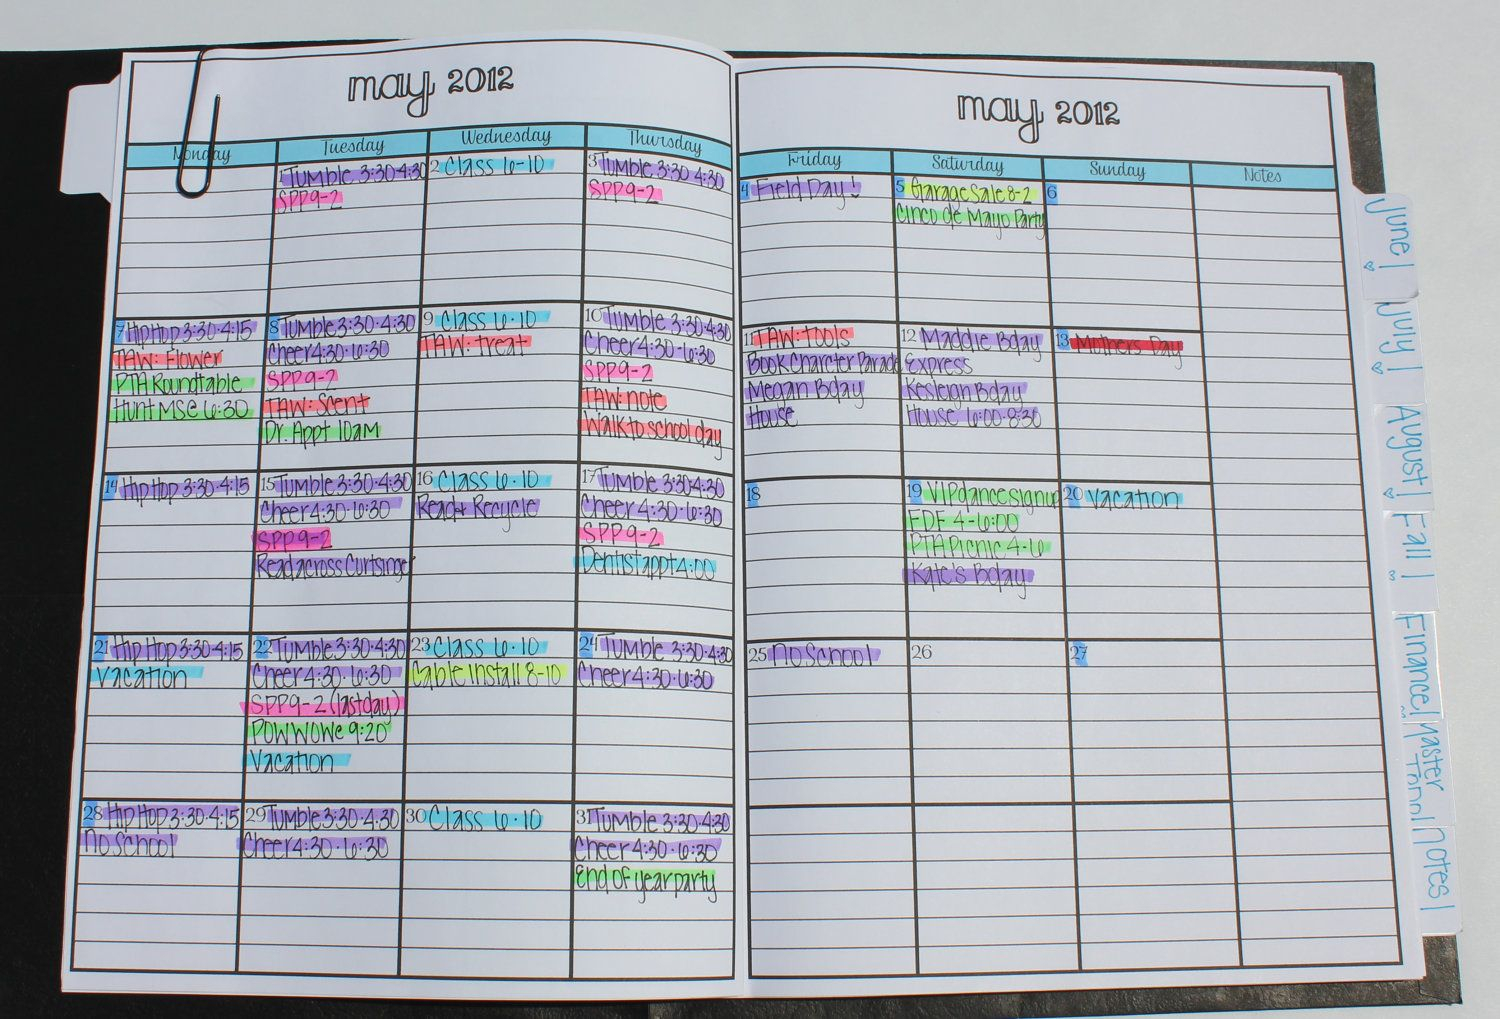 may 2012
Monday Tuesday Wednesday Thursday
1 Tumble 3:30-4:30
SPP 9-2
2 Class 6-10
3 Tumble 3:30 4:30
SPP 9-2
7 Hip Hop 3:30-4:15
TAW: Flower
PTA Roundtable
Hunt MSE 6:30
8 Tumble 3:30-4:30
Cheer 4:30-6:30
SPP 9-2
TAW: Scent
Dr. Appt 10am
9 Class 6-10
TAW: treat
10 Tumble 3:30-4:30
Cheer 4:30-6:30
SPP 9-2
TAW: note
Walk to school day
14 Hip Hop 3:30-4:15
15 Tumble 3:30-4:30
Cheer 4:30-6:30
SPP 9-2
Read across Curtsinger
16 Class 6-10
Read & Recycle
17 Tumble 3:30-4:30
Cheer 4:30-6:30
SPP 9-2
Dentist appt 4:00
21 Hip Hop 3:30-4:15
Vacation
22 Tumble 3:30-4:30
Cheer 4:30-6:30
SPP 9-2 (last day)
POWWOWe 9:20
Vacation
23 Class 6-10
Cable Install 8-10
24 Tumble 3:30-4:30
Cheer 4:30-6:30
28 Hip Hop 3:30-4:15
No School
29 Tumble 3:30-4:30
Cheer 4:30-6:30
30 Class 6-10
31 Tumble 3:30-4:30
Cheer 4:30-6:30
End of year party
may 2012
Friday Saturday Sunday Notes
4 Field Day!
5 Garage Sale 8-2
Cinco de Mayo Party
6
11 TAW: tools
Book Charcter Parade
Megan Bday
House
12 Maddie Bday
Express
Kesleigh Bday
House 6:00-8:30
13 Mothers Day
18
19 VIP dance signup
FDF 4-6:00
PTA Picnic 4-6
Kate's Bday
20 Vacation
25 No School
26
27
June
July
August
Fall
Finance
Master
Notes